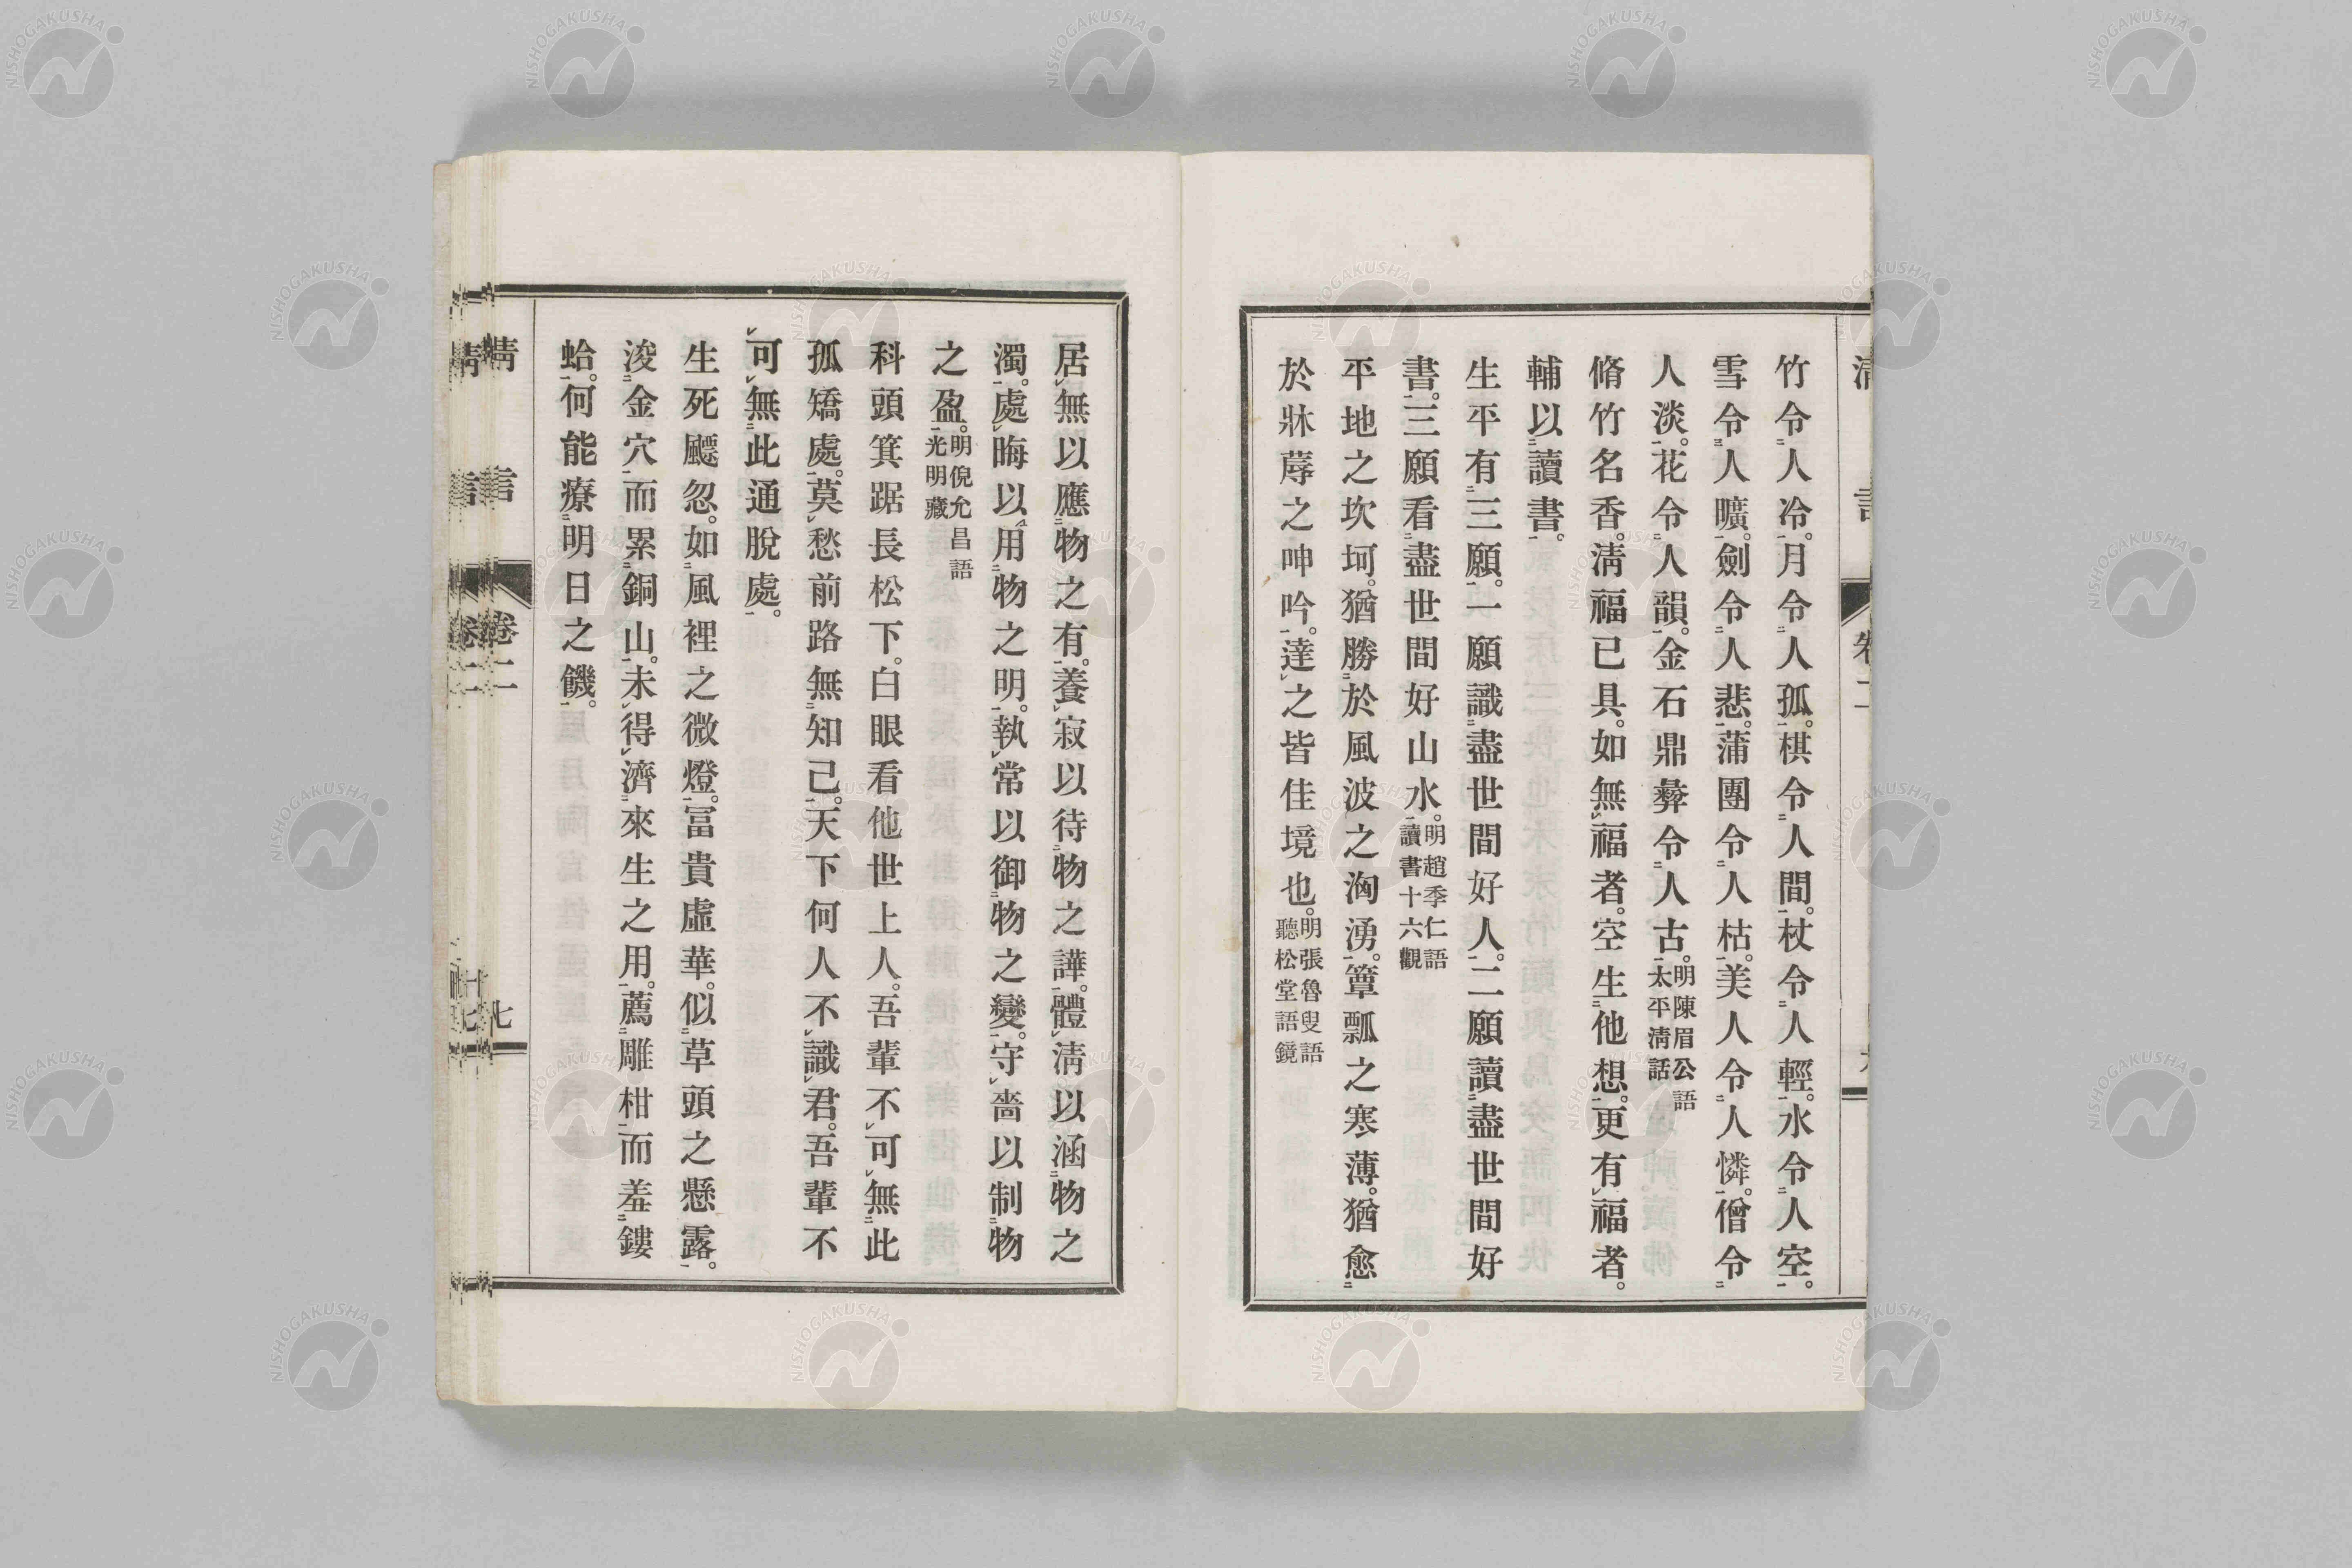 竹令人冷。月令人孤。棋令人間。杖令人輕。水令人空。
雪令人曠。劍令人悲。蒲團令人枯。美人令人憐。僧令
人淡。花令人韻。金石鼎彝令人古。明陳眉公語太平淸話
脩竹名香。淸福已具。如無福者。空生他想。更有福者。
輔以讀書。
生平有三願。一願識盡世間好人。二願讀盡世間好
書。三願看盡世間好山水。明趙季仁語讀書十六觀
平地之坎坷。猶勝於風波之洶湧。簞瓢之寒薄。猶愈
於牀蓐之呻吟。達之皆佳境也。明張魯叟語聽松堂語鏡
居無以應物之有。養寂以待物之譁。體淸以涵物之
濁。處晦以用物之明。執常以御物之變。守嗇以制物
之盈。明倪允昌語光明藏
科頭箕踞長松下。白眼看他世上人。吾輩不可無此
孤矯處。莫愁前路無知己。天下何人不識君。吾輩不
可無此通脫處。
生死飂忽。如風裡之微燈。富貴虛華。似草頭之懸露。
浚金穴而累銅山。未得濟來生之用。薦雕柑而羞鏤
蛤。何能療明日之饑。
淸言
卷二
七
NISHOGAKUSHA